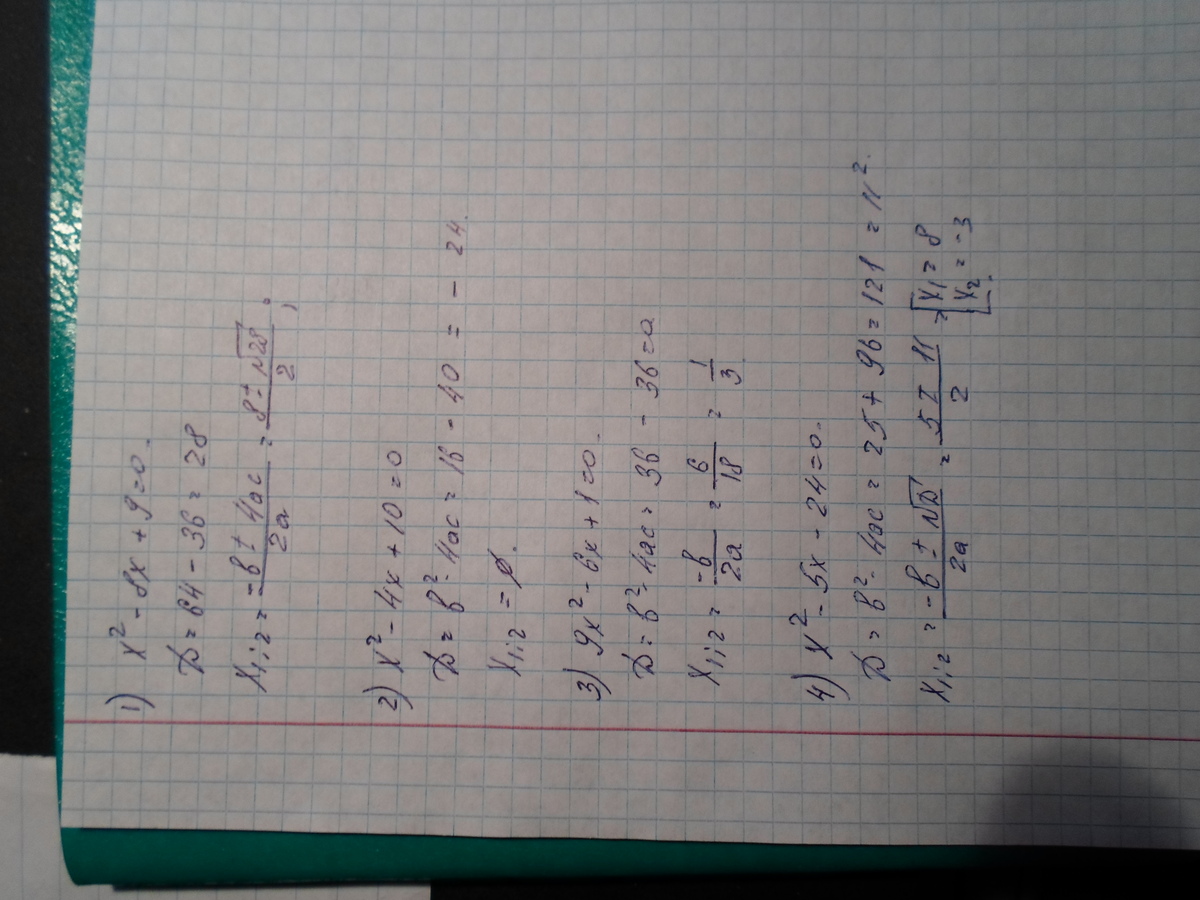 1) x² - 8x + 9 = 0.
D = 64 - 36 = 28
x₁;₂ = (-b ± 4ac)/(2a) = (8 ± √28)/2;
2) x² - 4x + 10 = 0
D = b² - 4ac = 16 - 40 = - 24.
x₁;₂ = ∅.
3) 9x² - 6x + 1 = 0.
D = b² - 4ac = 36 - 36 = 0
x₁;₂ = (-b)/(2a) = 6/18 = 1/3
4) x² - 5x - 24 = 0.
D = b² - 4ac = 25 + 96 = 121 = 11².
x₁;₂ = (-b ± √D)/(2a) = (5 ± 11)/2 = [x₁ = 8
x₂ = -3